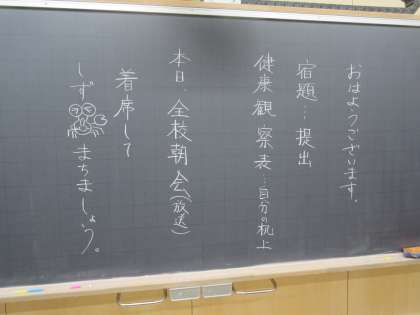 おはようございます。
宿題…提出
健康観察表…自分の机上
本日、全校朝会(放送)
着席して
しずかにまちましょう。